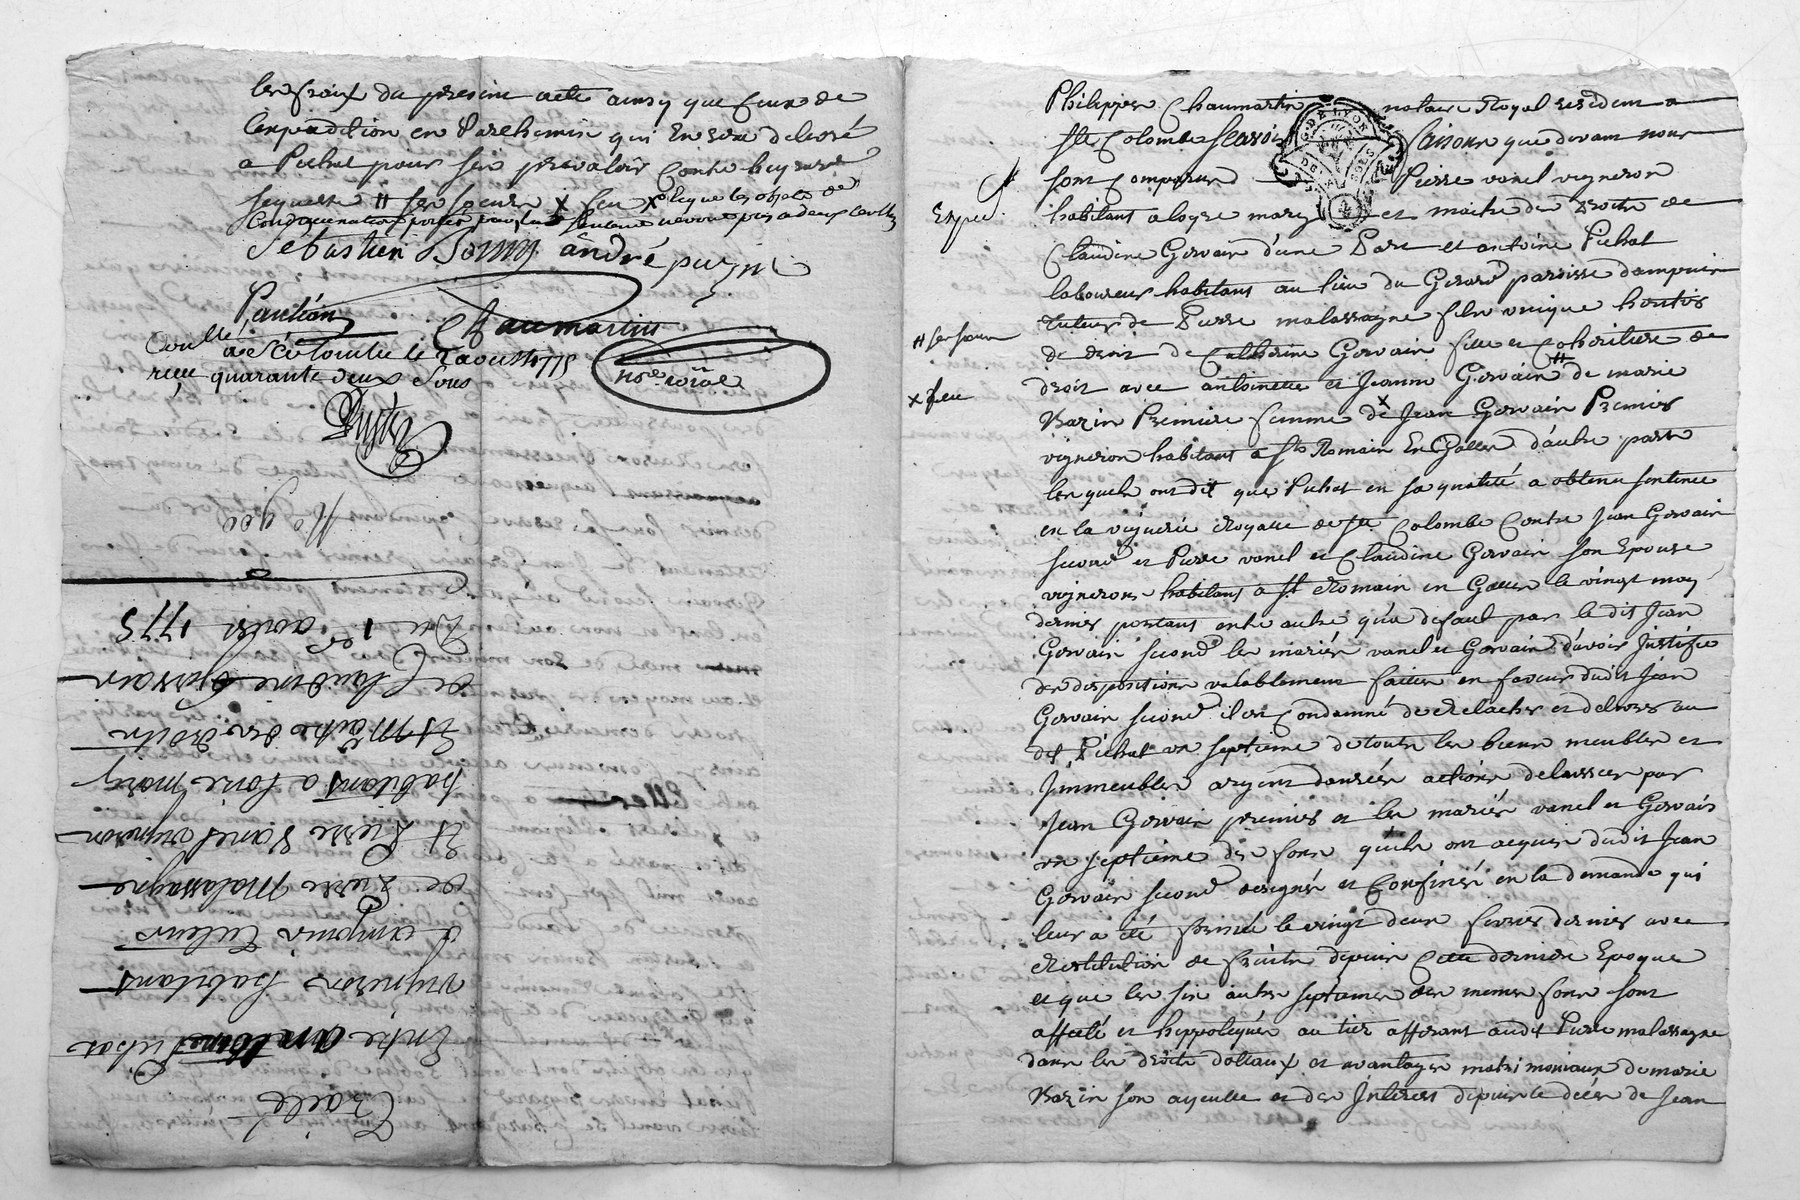 les fraix du present acte ainsy que ceux de
L'expedition en Parchemin qui En sera delivré
a Pichat pour s'en prevaloir Contre
# ses soeurs x feu x les objets de
Condamnation portée par la Sentence
Sebastien Bonny andré
Pauthon Chaumartin
Controllé
a Ste Colombe le
reçu quarante deux sous
nore. roïal
Traité
Entre antoine Pichat
vigneron habitant
a ampuis Tuteur
de Pierre Malassagne
Et Pierre Vanel vigneron
habitant a Loire mary
Et Maitre des droits
de Claudine Gervain
Du 1er aoust 1775
Philippes Chaumartin notaire Royal resident a
Ste Colombe Scavoir faisons que devant nous
sont Comparus Pierre vanel vigneron
Exped.
habitant a Loyre mary et maitre des droits de
Claudine Gervain d'une Part et antoine Pichat
laboureur habitant au lieu du Gerard paroisse dampuis
tuteur de Pierre malassagne fils unique heritier
# ses soeurs
de droit de Catherine Gervain fille et Coheritiere de
droit avec antoinette et Jeanne Gervain # de marie
x feu
Bazin Premiere femme de x Jean Gervain Premier
vigneron habitant a St Romain En Galles d'autre part
lesquels ont dit que Pichat en sa qualité a obtenu sentence
en la viguerie Royalle de Ste Colombe Contre Jean Gervain
second et Pierre vanel et Claudine Gervain son Epouse
vignerons habitans a St Romain en Galles le vingt may
dernier portant entre autre qu'a defaut par le dit Jean
Gervain second les mariés vanel et Gervain d'avoir Justifié
des dispositions valablement faites en faveur dudit Jean
Gervain second il est Condamné de Relacher et delivrer au
dit Pichat un septieme de toutes les biens meubles et
Jmmeubles argent danrées actions delaissées par
Jean Gervain premier et les mariés vanel et Gervain
un septieme des fonds quils ont acquis dudit Jean
Gervain second designés et Confinés en la demande qui
leur a été formée le vingt deux fevrier dernier avec
Restitution de fruits depuis Cette derniere Epoque
et que les six autres septiemes des memes fonds sont
affecté et hippotequés au tier afferant audit Pierre malassagne
dans les droits dotaux et avantages matrimoniaux de marie
Bazin son ayeulle et des Jnterets depuis le décès de Jean